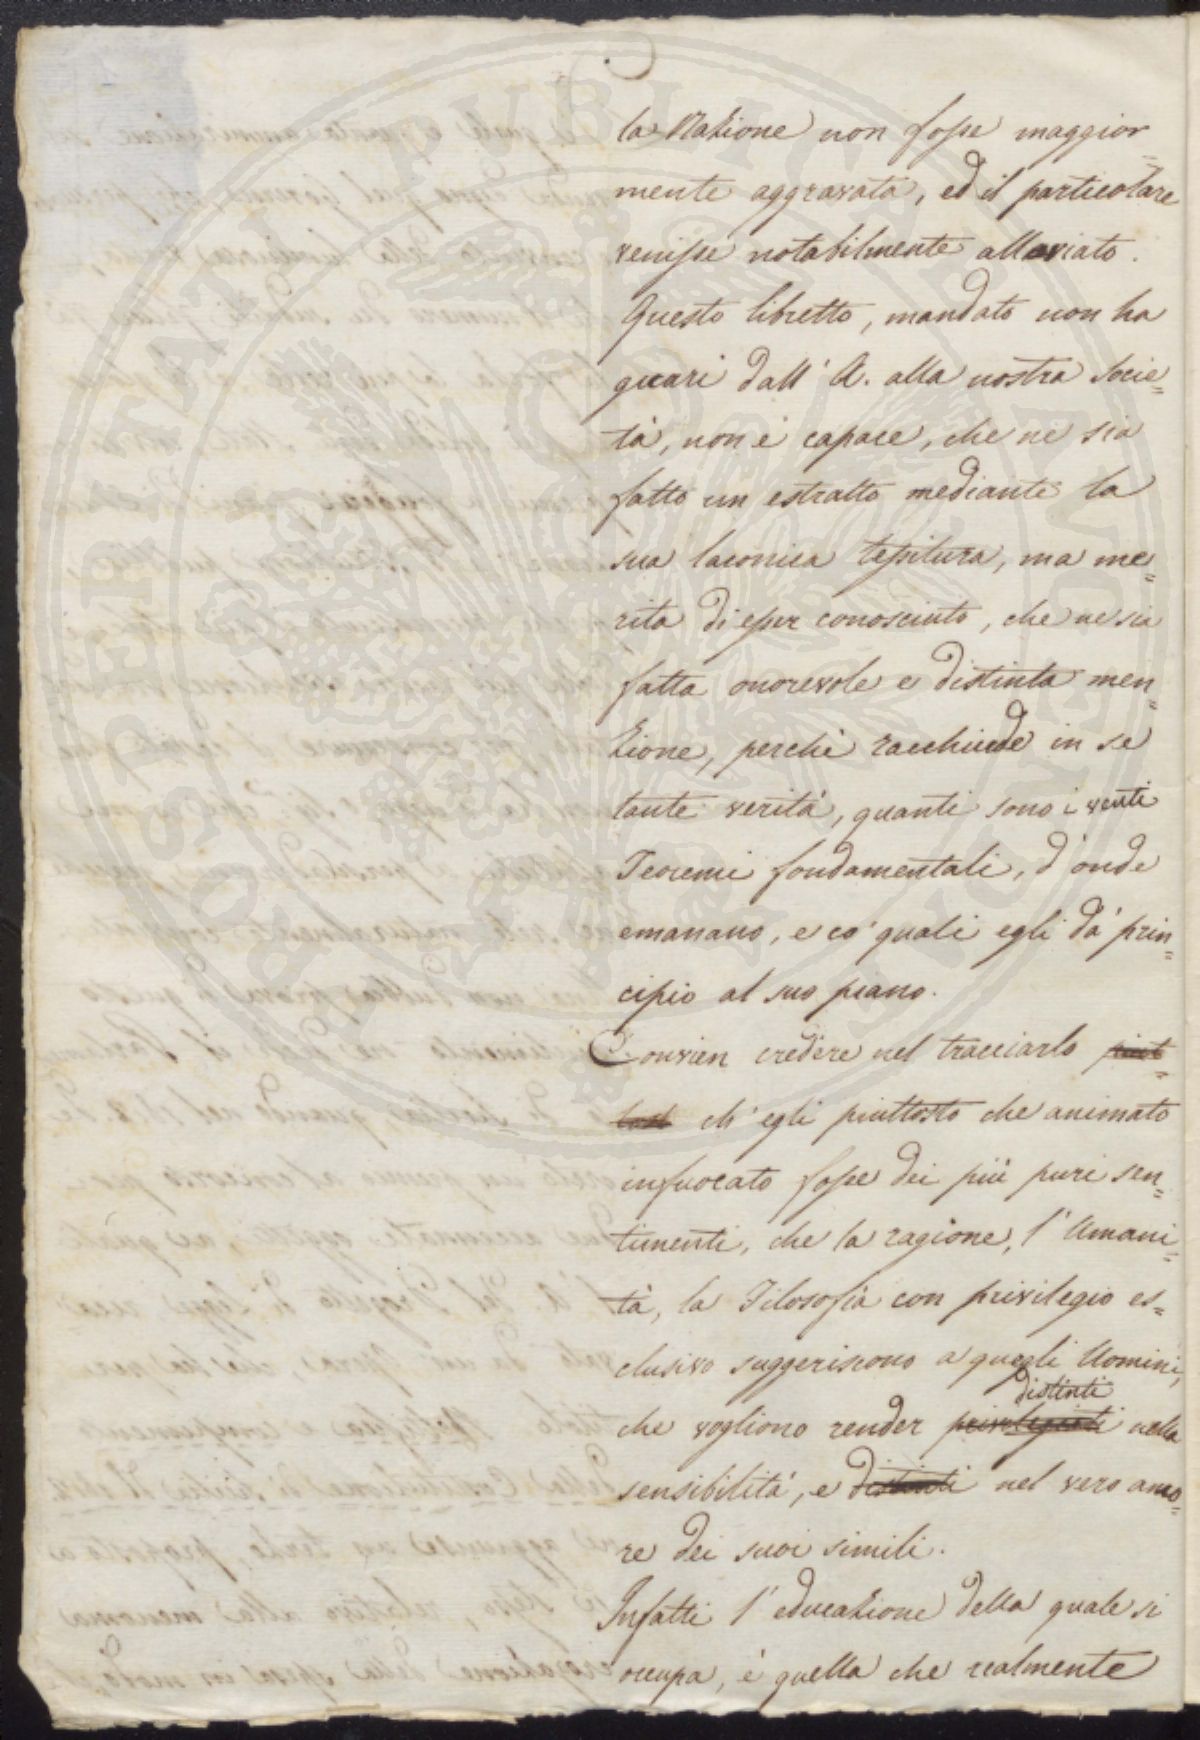 la Nazione non fosse maggior=
mente aggravata, ed il particolare
venisse notabilmente alleviato.
Questo libretto, mandato non ha
guari dall' A. alla nostra Socie=
tà, non è capace, che ne sia
fatto un estratto mediante la
sua laconica tessitura, ma me=
rita di esser conosciuto, che ne sia
fatta onorevole e distinta men=
zione, perchè racchiude in se
tante verità, quanti sono i venti
Teoremi fondamentali, d'onde
emanano, e co' quali egli dà prin=
cipio al suo piano.
Convien credere nel tracciarlo piut=
tost ch'egli piuttosto che animato
infuocato fosse dei più puri sen=
timenti, che la ragione, l'Umani=
tà, la Filosofia con privilegio es=
clusivo suggeriscono a quegli Uomini,
distinti
che vogliono render privilegiati nella
sensibilità, e distinti nel vero amo=
re dei suoi simili.
Infatti l'educazione della quale si
occupa, è quella che realmente
PROSPERITATI PUBLICAE AUGENDAE